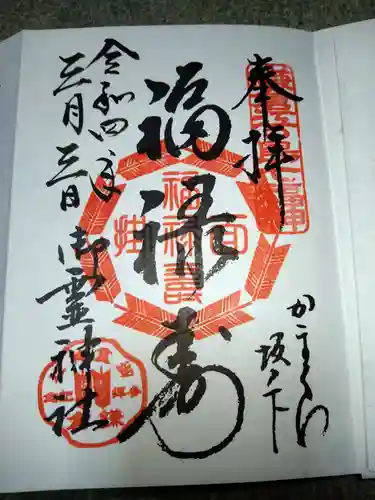 奉拝
かまくら
坂ノ下
福禄寿
令和四年
三月三日
御霊神社